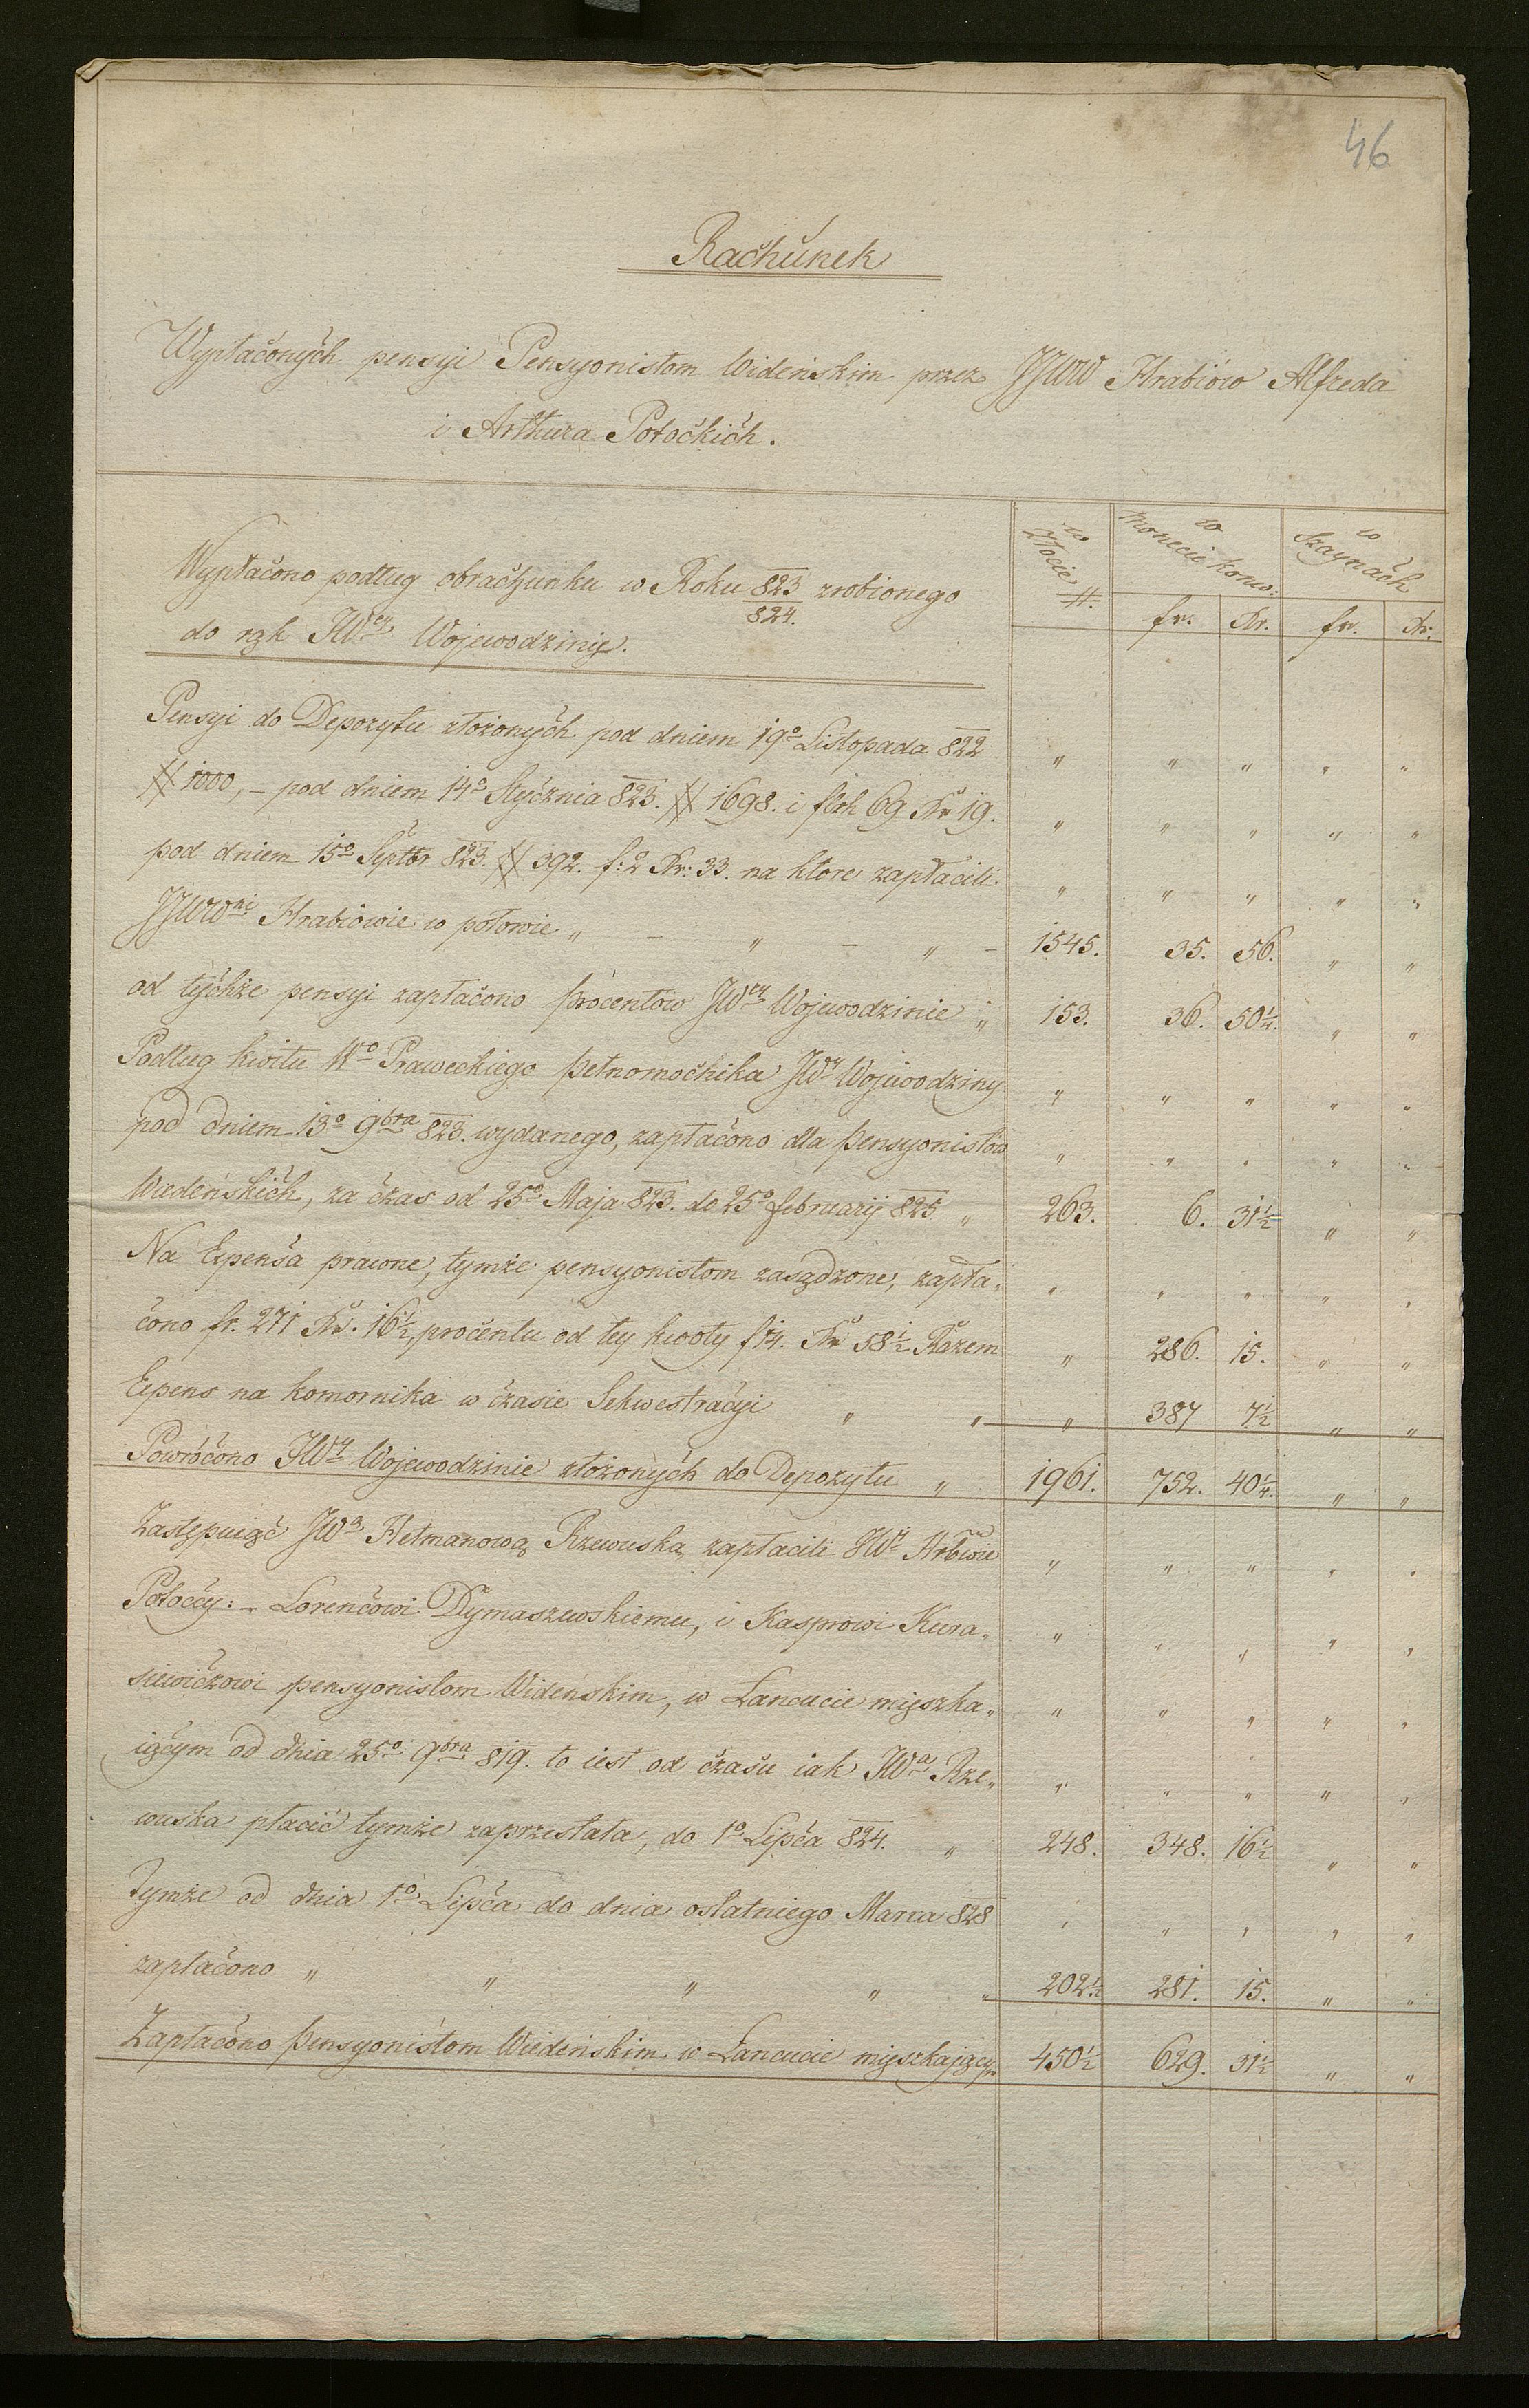 46
Rachunek
Wypłaconych pensyi Pensyonistom Widenskim przez JJWW Hrabiow Alfreda
i Arthura Potockich.
w Złocie #.
w Monecie konw:
w Szaynach
fr. Kr. fr. Kr.
Wypłacono podług obrachunku w Roku 823/824. zrobionego
do rąk JWey Wojewodziniy.
Pensyi do Depozytu złożonych pod dniem 19o Listopada 822 " " " " "
# 1000, – pod dniem 14o Stycznia 823. # 1698. i frh 69 Kr 19. " " " " "
pod dniem 15o Septbr 823. # 392. f: 2 Kr: 33. na ktore zapłacili " " " " "
JJWWni Hrabiowie w połowie " – " – " – 1545. 35. 56. " "
od tychże pensyi zapłacono procentow JWey Wojewodzinie " 153. 36. 50¼. " "
Podług kwitu Wo Praweckiego pełnomocnika JWy Wojewodziny " " " " "
pod dniem 13o 9bra 823. wydanego, zapłacono dla pensyonistow " " " " "
Wiedeńskich, za czas od 25o Maja 823. do 25o februarij 825 " 263. 6. 31½ " "
Na Expensa prawne, tymże pensyonistom zasądzone, zapła, " " " " "
cono fr. 271 Kr. 16½, procentu od tey kwoty f 14. Kr 58½ Razem " 286. 15. " "
Expens na komornika w czasie Sekwestracyi " " " 387 7½ " "
Powrócono JWy Wojewodzinie złożonych do Depozytu " 1961. 752. 40¼. " "
Zastępuiąc JWą Hetmanową Rzewuską zapłacili JWi Hrbiwie " " " " "
Potoccy: – Lorencowi Dymaszewskiemu, i Kasprowi Kura, " " " " "
siewiczowi pensyonistom Widenskim, w Lancucie mięszka, " " " " "
iącym od dnia 25o 9bra 819. to iest od czasu iak JWa Rze, " " " " "
wuska płacić tymże zaprzestała, do 1o Lipca 824. " 248. 348. 16½ " "
Tymże od dnia 1o Lipca do dnia ostatniego Marca 828 " " " " "
zapłacono " " " " " 202½ 281. 15. " "
Zapłacono pensyonistom Wiedeńskim w Łancucie mięszkającym 450½ 629. 31½ " "